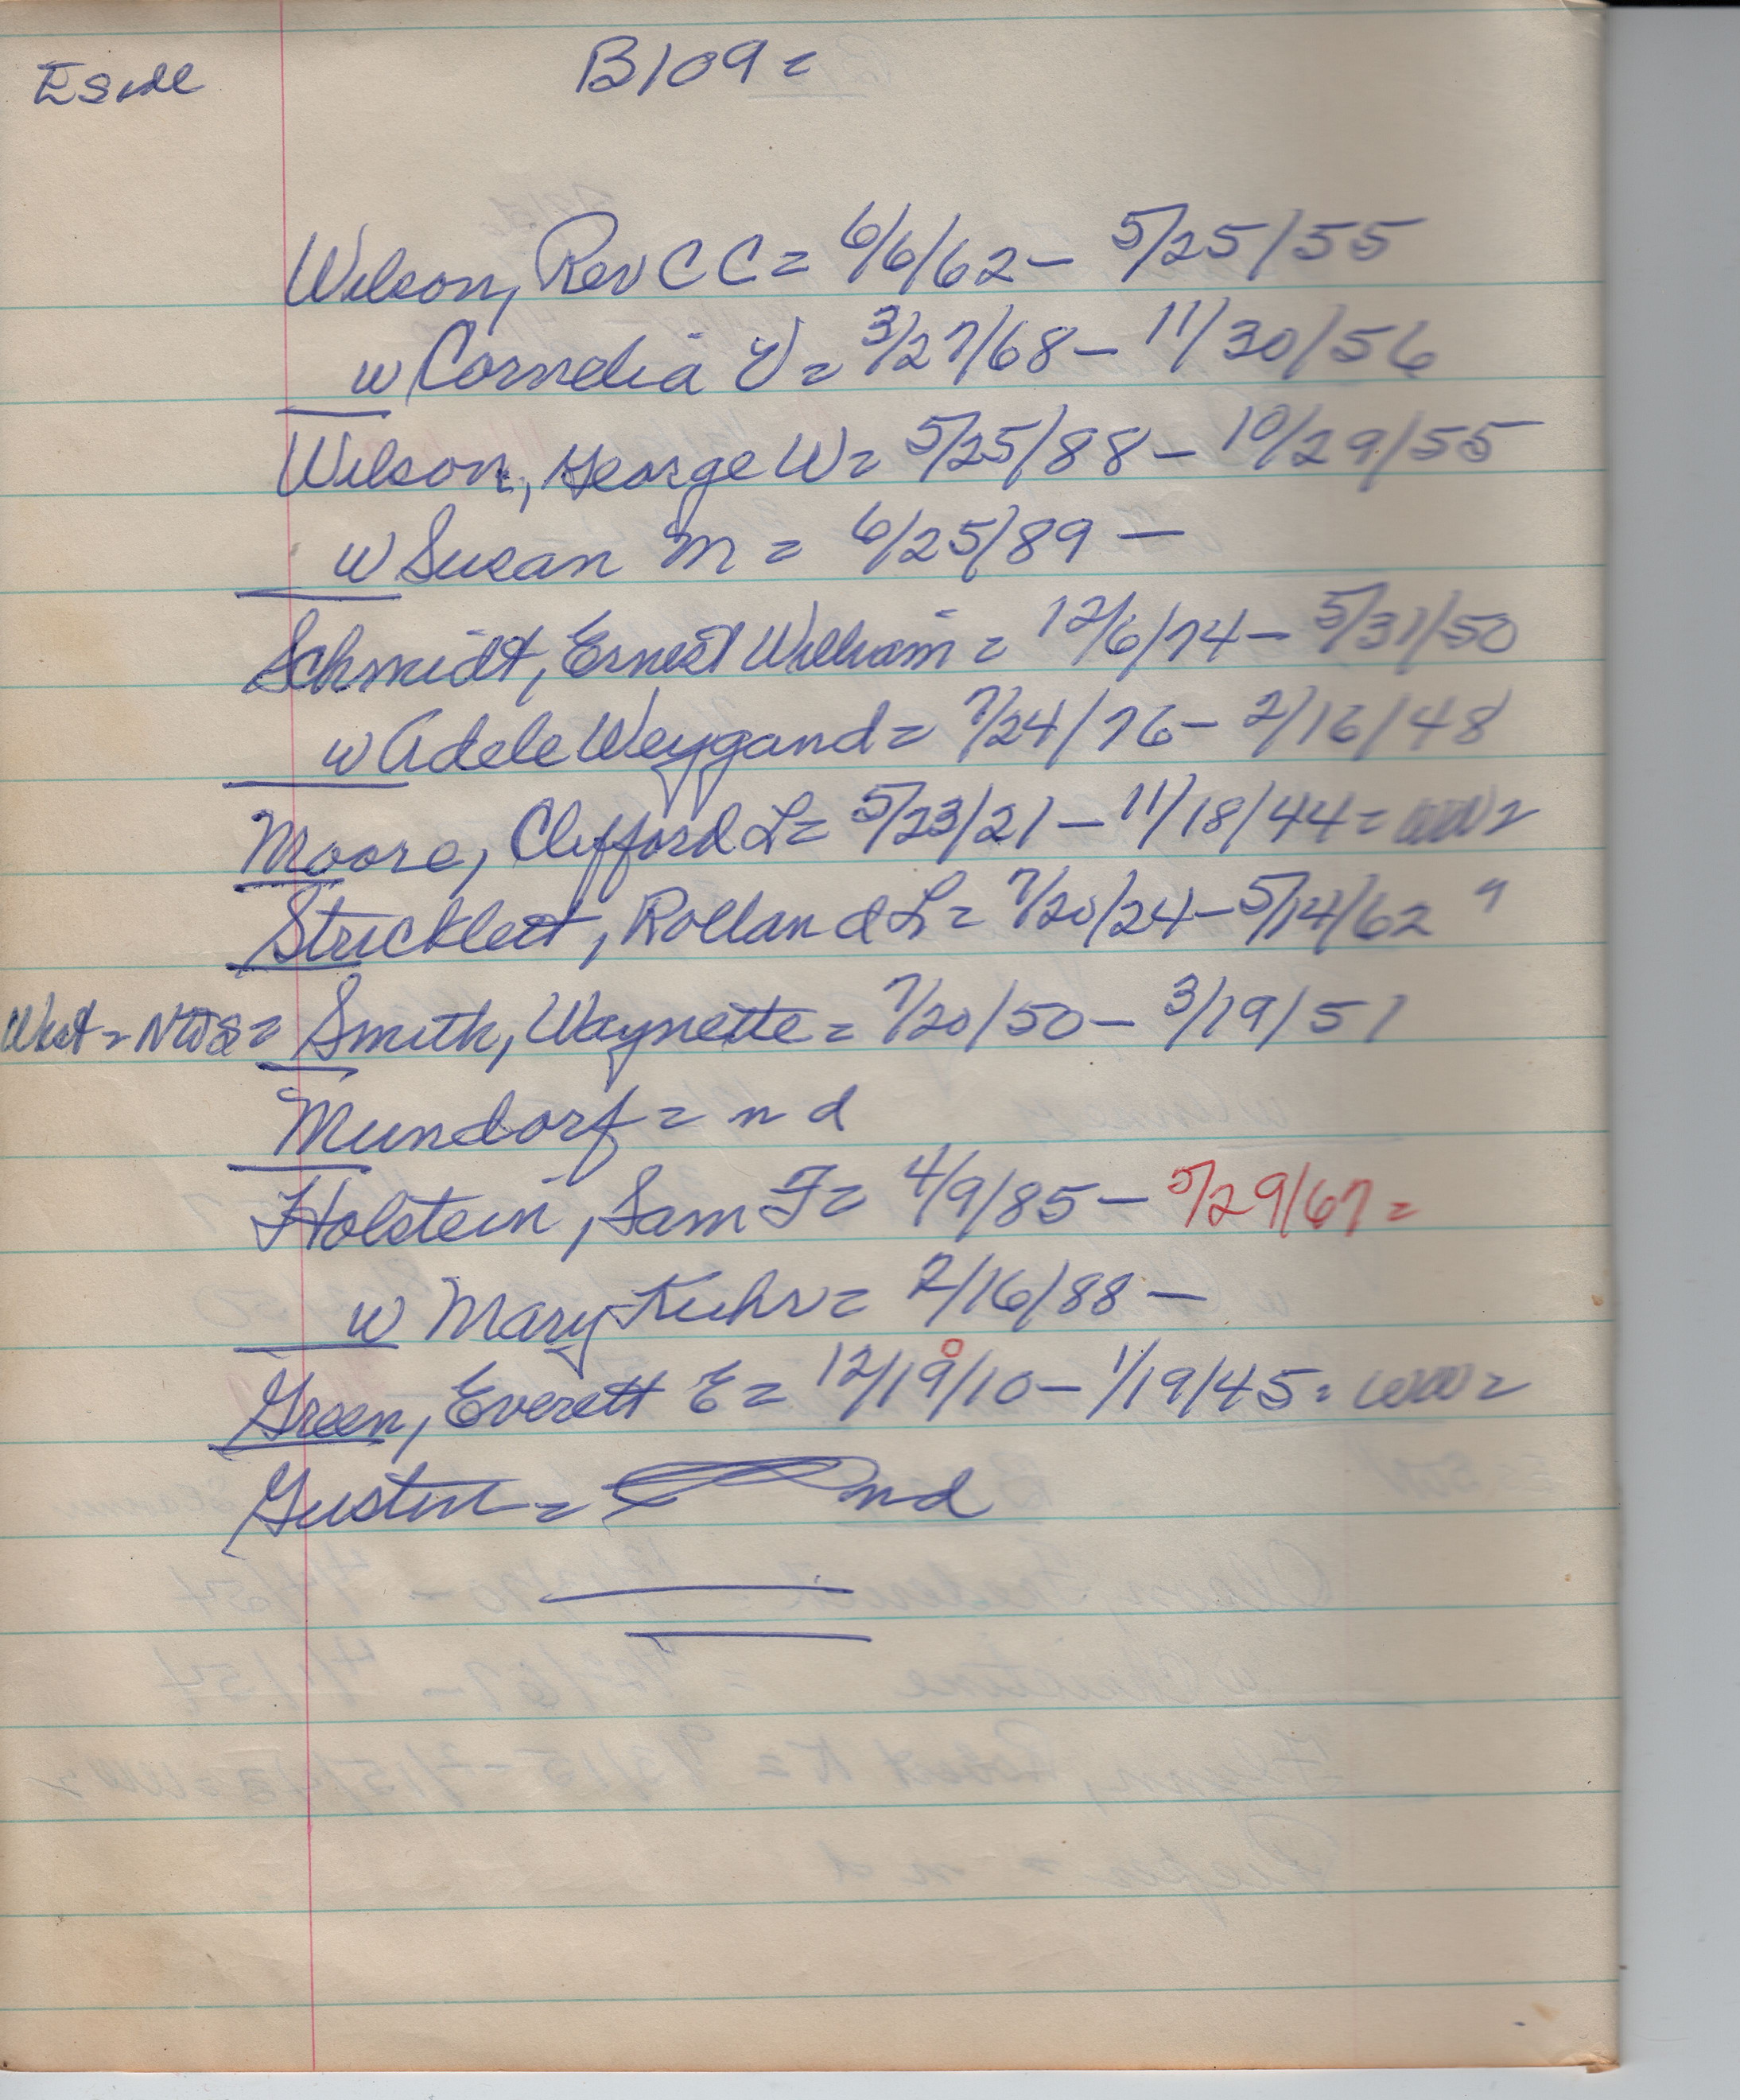 E side B109=
Wilson, Rev C C = 6/6/62 - 5/25/55
w Cornelia V = 3/27/68 - 11/30/56
Wilson, George W = 5/25/88 - 10/29/55
w Susan M = 6/25/89 -
Schmidt, Ernest William = 12/6/74 - 5/31/50
w Adele Weygand = 7/24/76 - 2/16/48
Moore, Clifford L = 5/23/21 - 11/18/44 = WW2
Stricklett, Rolland L = 7/20/24 - 5/14/62 "
West = = Smith, Waynette = 7/20/50 - 3/19/51
Mundorf = n d
Holstein, Sam F = 4/9/85 - 5/29/67 =
w Mary Kuhr = 2/16/88 -
Green, Everett E = 12/19/10 - 1/19/45 = WW2
Gustin = nd